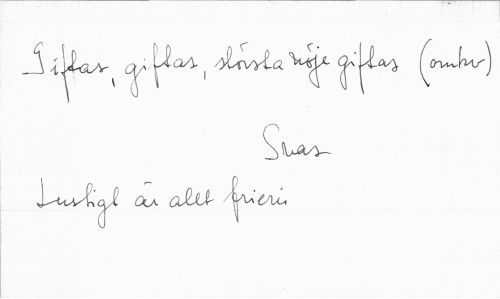 Giftas, giftas, största nöje giftas (omkv)
Snas
Lustigt är allt frieri